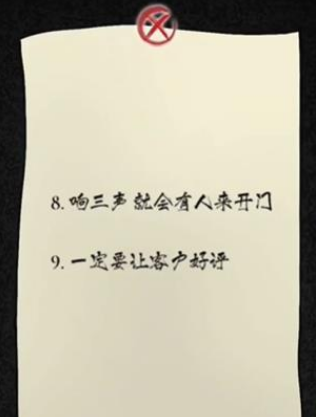 8. 响三声就会有人来开门
9. 一定要让客户好评